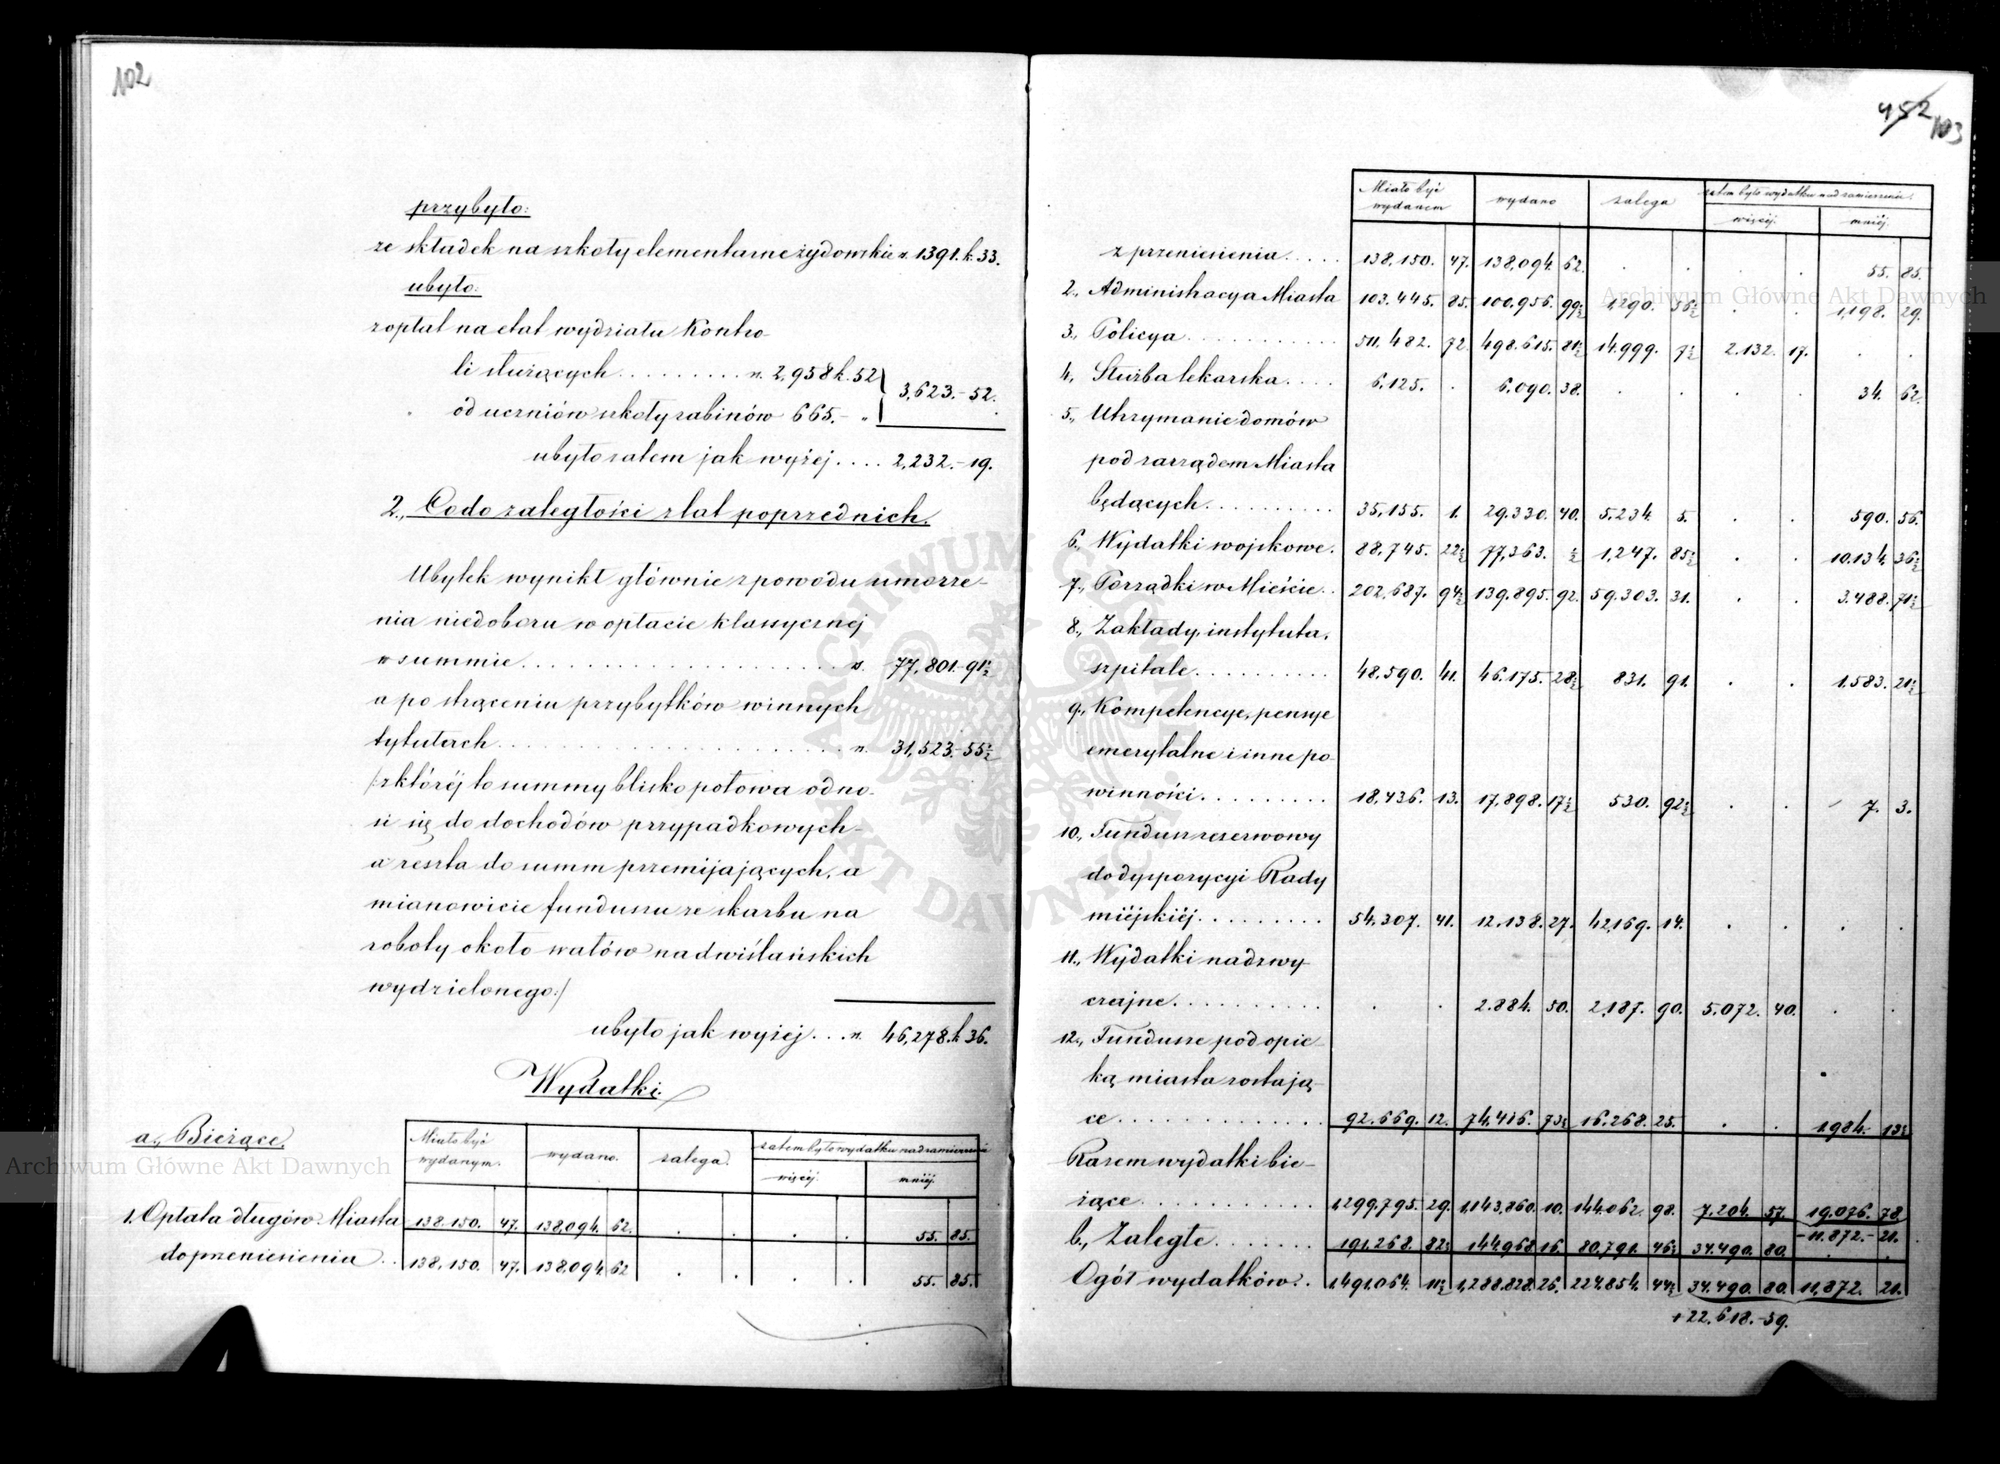 102
przybyło:
ze składek na szkoły elementarne żydowskie r. 1391. k. 33.
ubyło:
z opłat na etat wydziału Kontro-
li służących . . . . . . . . . r. 2,958 k. 52
3,623. – 52.
od uczniów szkoły rabinów 665. – „
ubyło zatem jak wyżej . . . . 2,232. – 19.
2., Co do zaległości z lat poprzednich.
Ubytek wynikł głównie z powodu umorze-
nia niedoboru w opłacie klassycznej
w summie . . . . . . . . . . r. 77,801. – 91½
a po strąceniu przybytków w innych
tytułach . . . . . . . . . . r. 31,523. – 55½
/z której to summy blisko połowa odno-
si się do dochodów przypadkowych –
a reszta do summ przemijających, a
mianowicie funduszu ze skarbu na
roboty około wałów nadwiślańskich
wydzielonego:/
ubyło jak wyżej . . . r. 46,278. k. 36.
Wydatki.
a., Bieżące.
Miało być wydanym. wydano. zalega. zatem było wydatku nad zamierzenie
więcéj. mniéj.
1. Opłata długów Miasta 138.150. 47. 138,094. 62. . . . . 55. 85.
do przeniesienia . . 138,150. 47. 138,094. 62 . . . . 55. 85.
452 103
Miało być wydanem wydano zalega zatem było wydatku nad zamierzenie.
więcéj. mniéj.
z przeniesienia . . . . 138,150. 47. 138,094. 62. . . . . 55. 85.
2., Administracya Miasta 103.445. 85. 100.956. 99½ 1,290. 56½ . . 1,198. 29.
3., Policya . . . . . . . . . 511.482. 72. 498.615. 81½ 14.999. 7½ 2.132. 17. . .
4., Służba lekarska . . . . 6,125. . 6.090. 38. . . . . 34. 62.
5., Utrzymanie domów
pod zarządem Miasta
będących . . . . . . . . . 35,155. 1. 29.330. 40. 5.234. 5. . . 590. 56.
6., Wydatki wojskowe. 88,745. 22½ 77,363. ½ 1,247. 85½ . . 10.134. 36½
7., Porządki w Mieście . . 202,687. 94½ 139,895. 92. 59.303. 31. . . 3.488. 71½
8., Zakłady, instytuta,
szpitale . . . . . . . . . 48,590. 41. 46.175. 28½ 831. 91. . . 1.583. 21½
9., Kompetencye, pensye
emerytalne i inne po-
winności . . . . . . . . . 18,436. 13. 17.898. 17½ 530. 92½ . . 7. 3.
10., Fundusz rezerwowy
do dyspozycyi Rady
miejskiéj . . . . . . . . 54,307. 41. 12.138. 27. 42,169. 14. . . . .
11., Wydatki nadzwy-
czajne . . . . . . . . . . . . 2.884. 50. 2,187. 90. 5.072. 40. . .
12., Fundusze pod opie-
ką miasta zostają-
ce . . . . . . . . . . . . . 92.669. 12. 74,416. 73½ 16.268. 25. . . 1984. – 13½
Razem wydatki bie-
żące . . . . . . . . . . . 1,299,795. 29. 1,143,860. 10. 144.062. 98. 7.204. 57. 19.076. 78
– 11.872. – 21.
b., Zaległe . . . . . . . 191.268. 82½ 144,968. 16. 80,791. 46½ 34.490. 80. . .
Ogół wydatków . . 1,491.064. 11½ 1,288.828. 26. 224.854. 44½ 34.490. 80. 11,872. 21.
+ 22.618. – 59.
Archiwum Główne Akt Dawnych
Archiwum Główne Akt Dawnych
ARCHIWUM GŁÓWNE AKT DAWNYCH